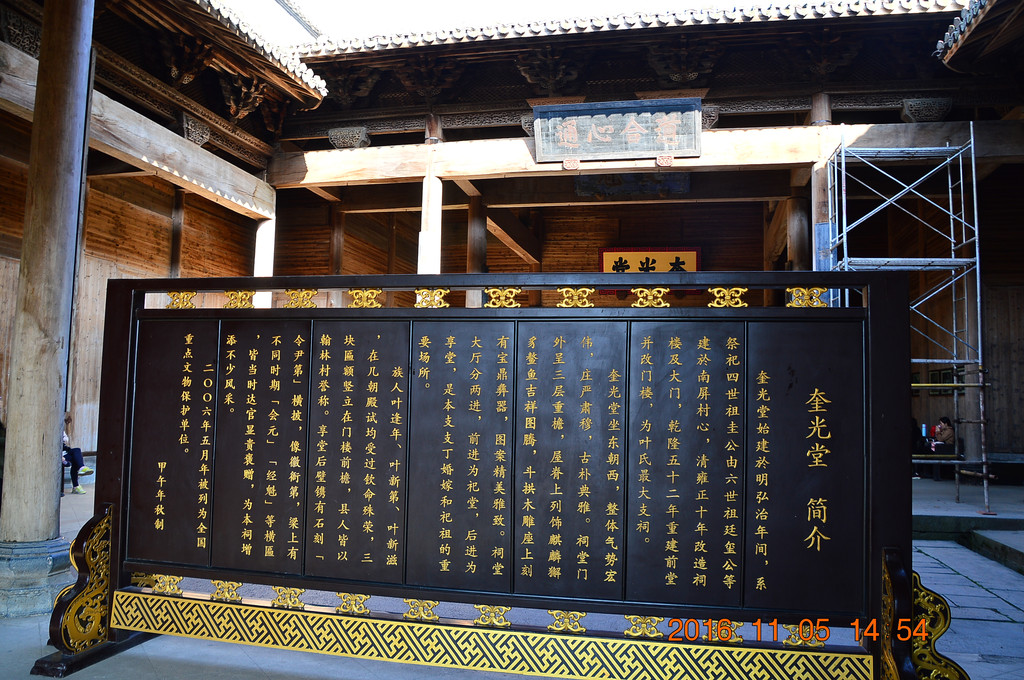 奎光堂 简介
奎光堂始建於明弘治年间，系
祭祝四世祖圭公由六世祖廷玺公等
建於南屏村心，清雍正十年改造祠
楼及大门，乾隆五十二年重建前堂
并改门楼，为叶氏最大支祠。
奎光堂坐东朝西，整体气势宏
伟，庄严肃穆，古朴典雅。祠堂门
外呈三层重檐，屋脊上列饰麒麟獬
豸鳌鱼吉祥图腾，斗拱木雕座上刻
有宝鼎彝器，图案精美雅致。祠堂
大厅分两进，前进为祀堂，后进为
享堂，是本支支丁婚嫁和祀祖的重
要场所。
族人叶逢年、叶新第、叶新滋
，在几朝殿试均受过钦命殊荣，三
块匾额竖立在门楼前檐，县人皆以
翰林村誉称。享堂后壁镌有石刻「
令尹第」横披，像徽衙第，梁上有
不同时期「会元」「经魁」等横匾
，皆当时达官显贵褒赠，为本祠增
添不少风采。
二〇〇六年五月年被列为全国
重点文物保护单位。
甲午年秋制
2016 11 05 14 54